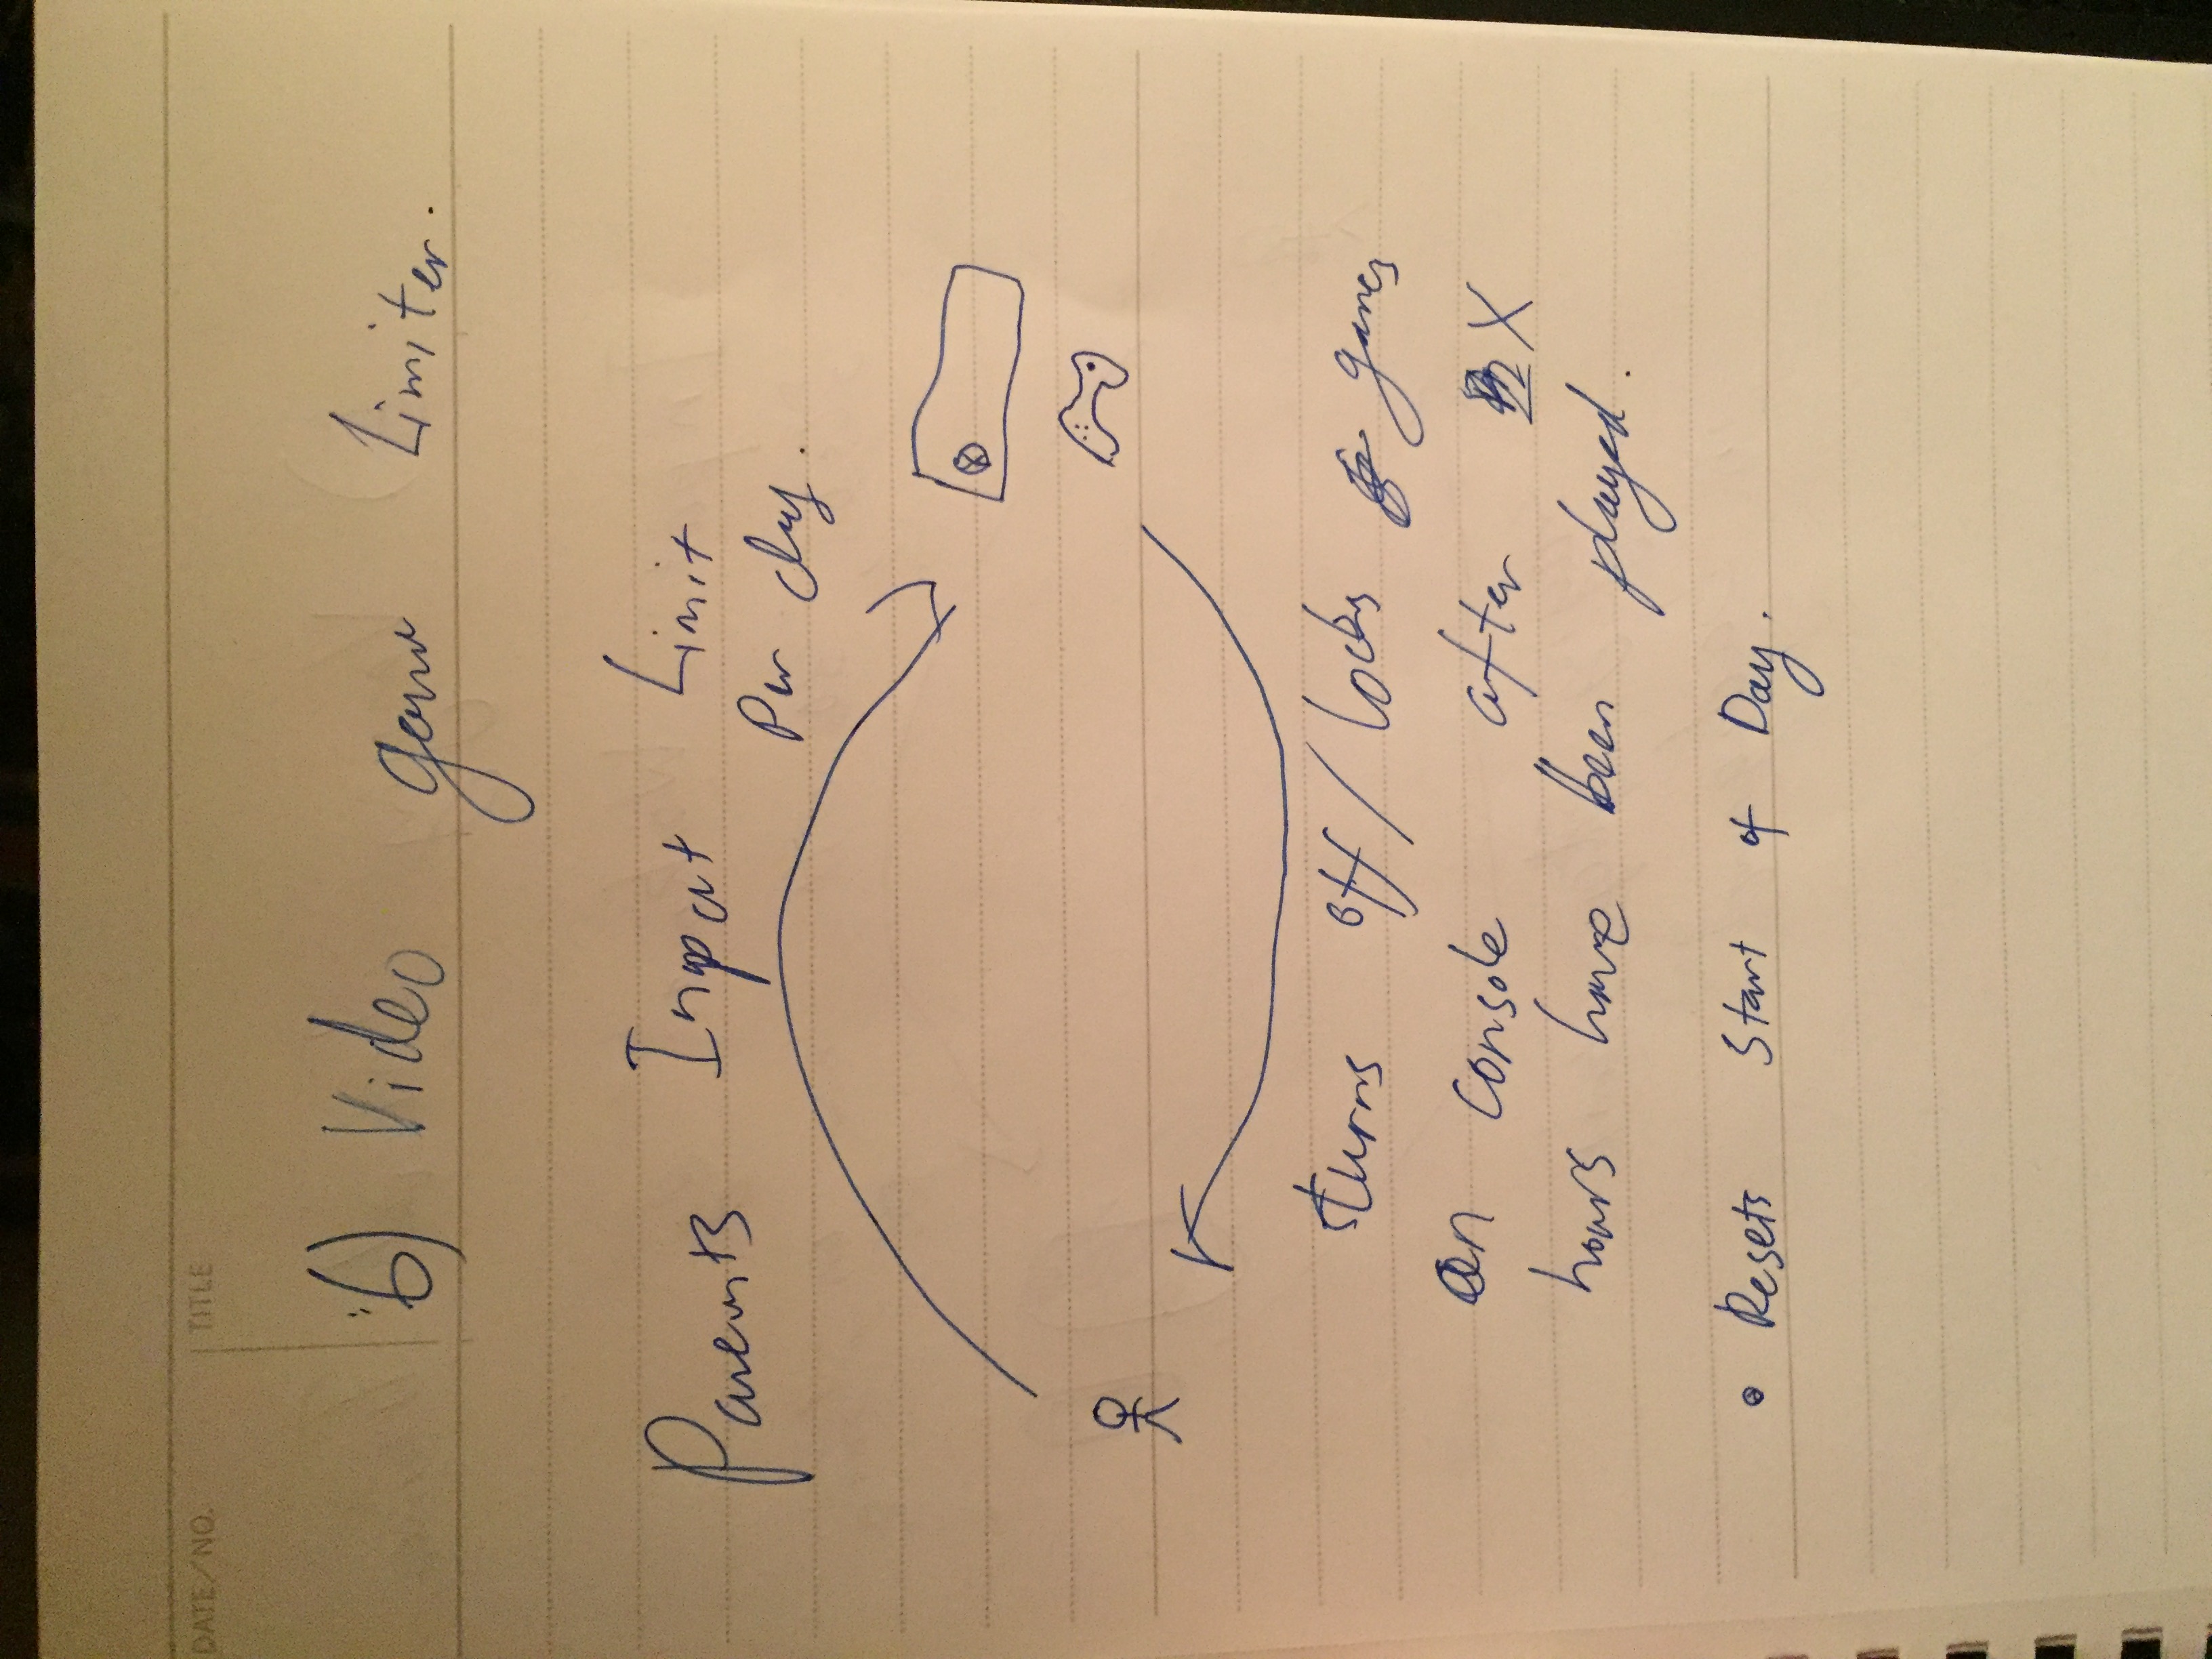 DATE/NO. TITLE
6) Video game Limiter.
Parents Input Limit
Per day.
turns off/locks games
on console after X
hours have been played.
• Resets Start of Day.